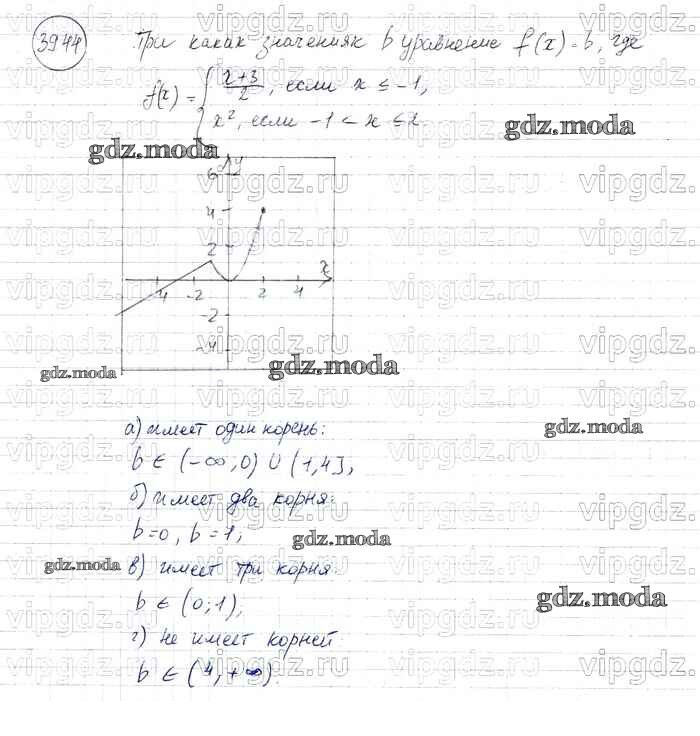 3944
При каких значениях b уравнение f(x)=b, где
f(x) = { x+3/2, если x ≤ -1,
x², если -1 < x ≤ 2
gdz.moda
gdz.moda
y
6
4
2
x
-4 -2 2 4
-2
-4
gdz.moda
gdz.moda
а) имеет один корень:
gdz.moda
b ∈ (-∞;0) ∪ (1,4],
б) имеет два корня:
b=0, b=1;
gdz.moda
gdz.moda
в) имеет три корня:
b ∈ (0;1),
gdz.moda
г) не имеет корней:
b ∈ (4,+∞).
vipgdz.ru